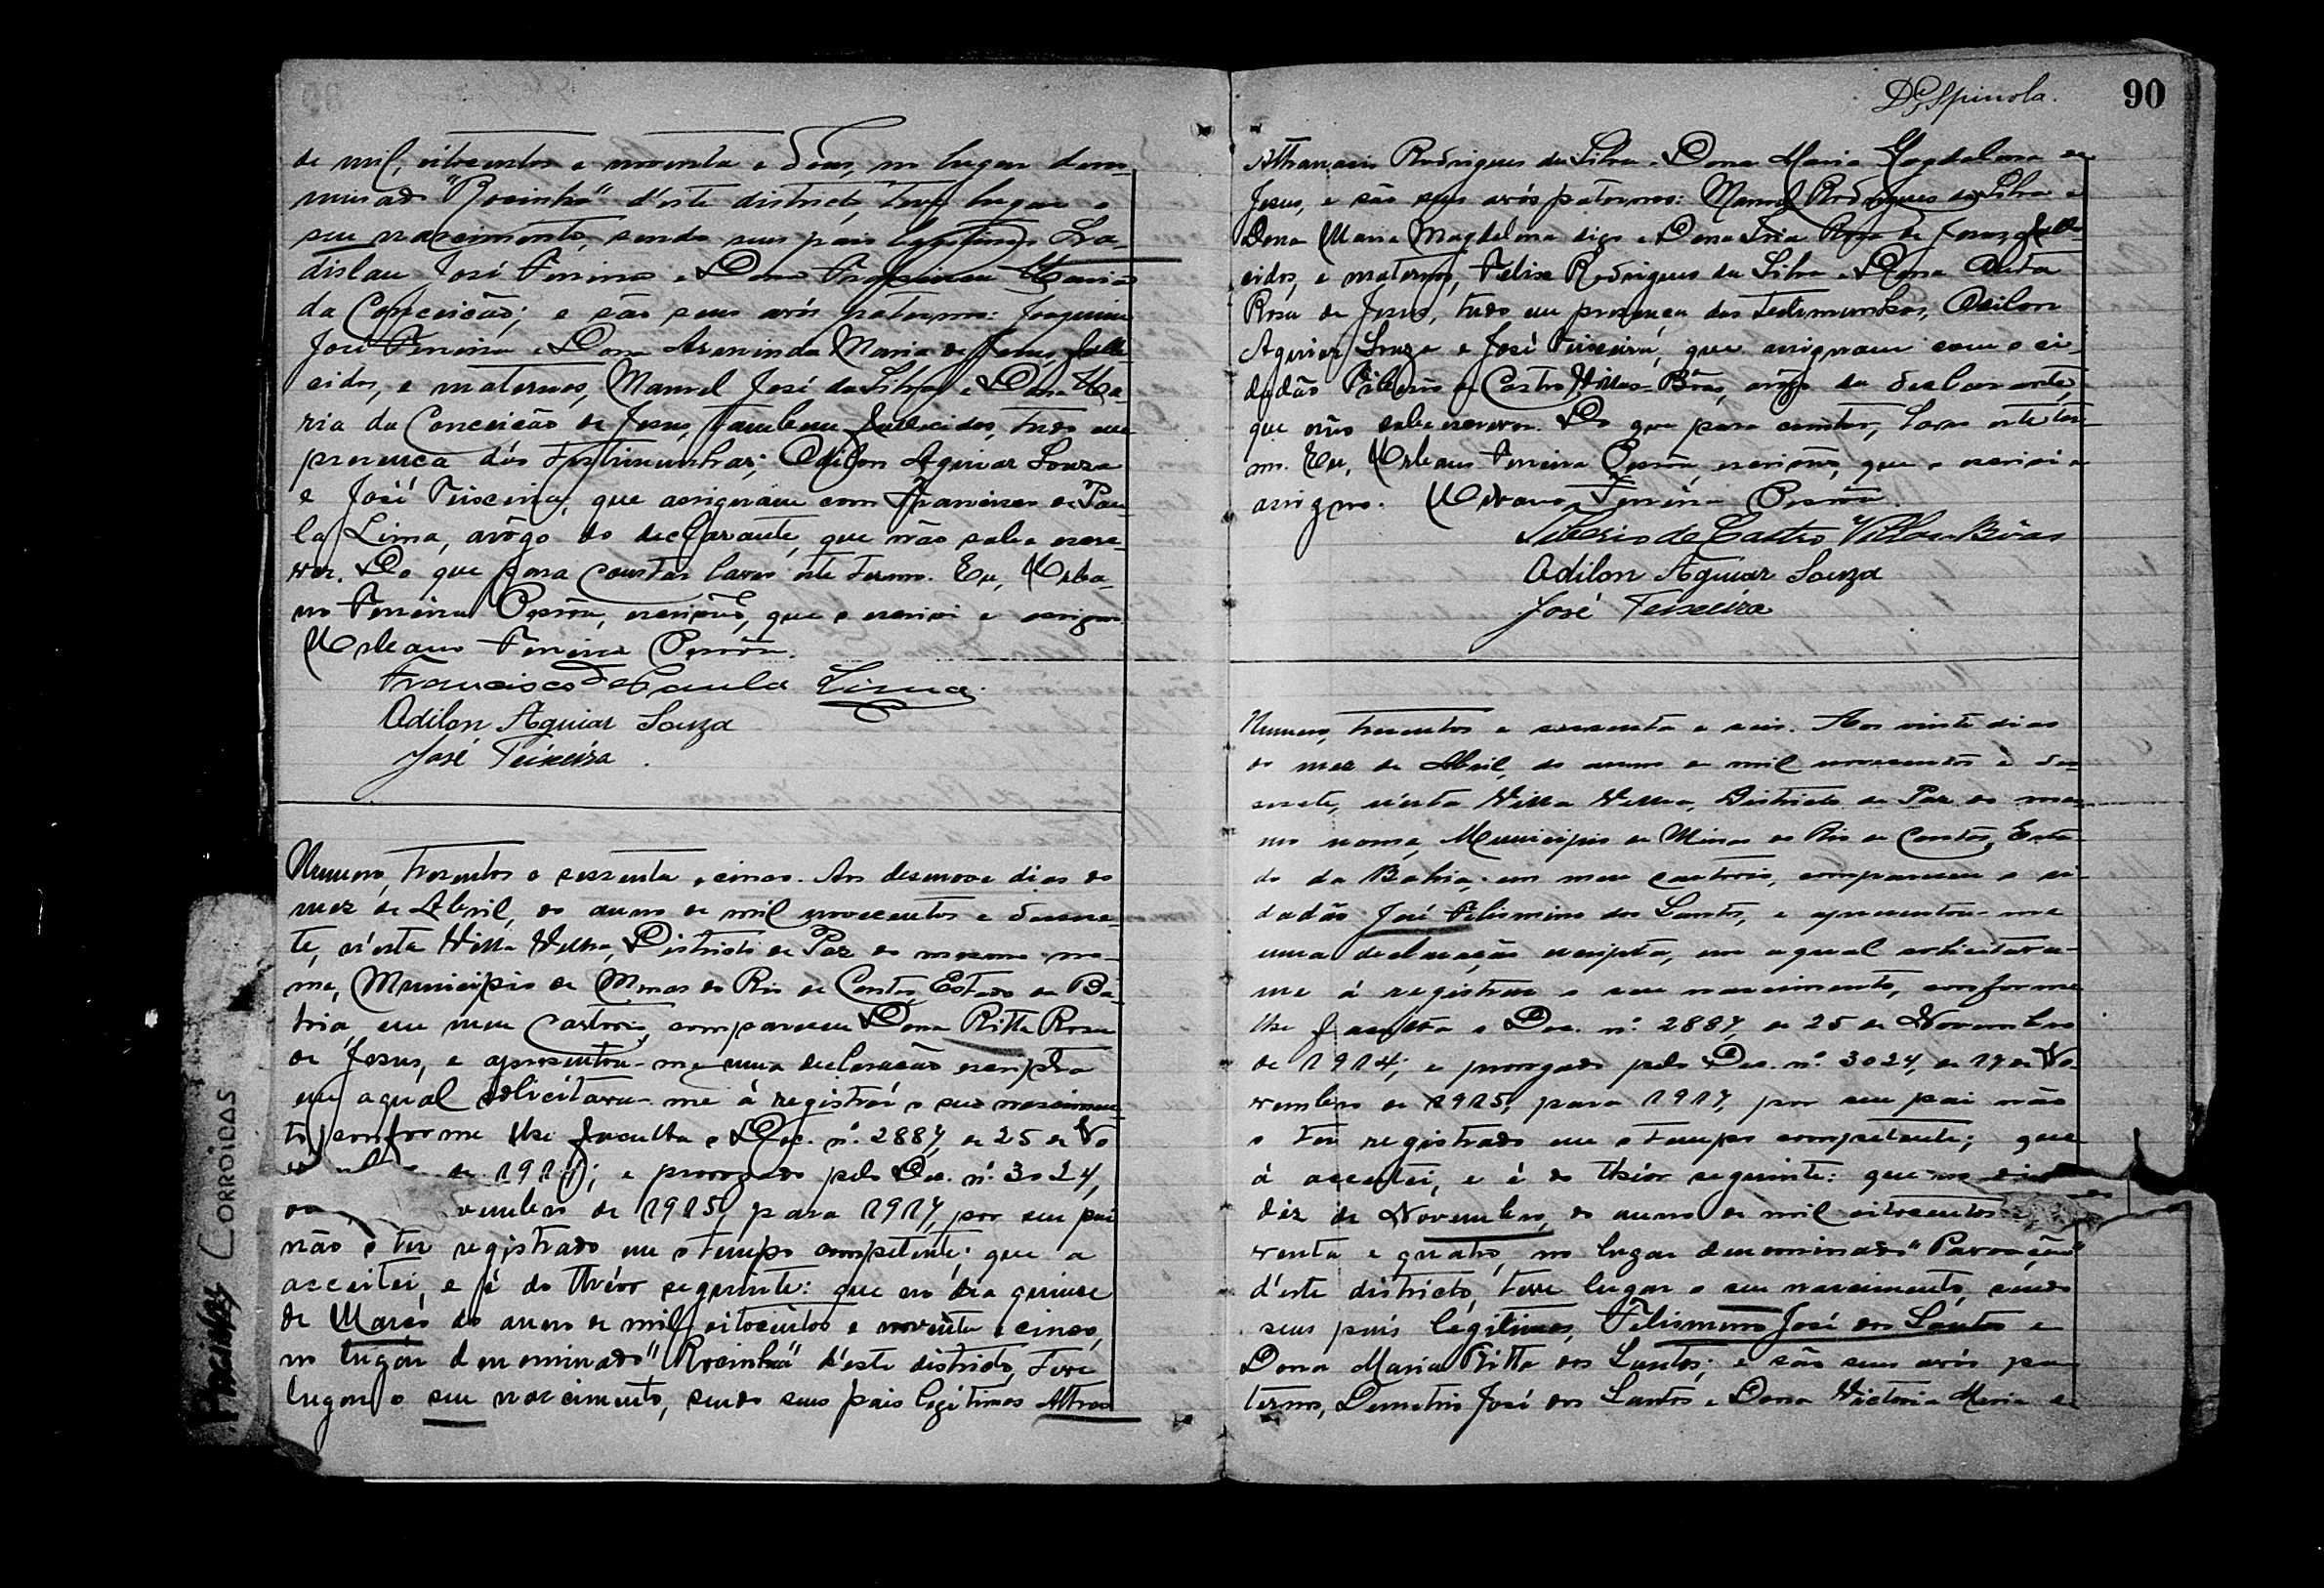 de mil, oitocentos e noventa e dous, no lugar deno-
minado "Rocinha" d'este districto, teve lugar o
seu nascimento, sendo seus pais legitimos La-
dislau José Ferreira e Dona Maria
da Conceição; e são seus avós paternos: Joaquim
José Ferreira e Dona Maria de Jesus, falle-
cidos, e maternos, Manoel José da Silva e Dona Ma-
ria da Conceição de Jesus, tambem fallecidos, tudo em
presença das testimunhas; Odilon Aguiar Souza
e José Teixeira, que assignam com Francisco de Pau-
la Lima, arôgo do declarante, que não sabe escre-
ver. Do que para constar lavro este termo. Eu, Urba-
no Ferreira escrivão, que o escrevi e assigno
Urbano Ferreira
Francisco de Paula Lima.
Odilon Aguiar Souza
José Teixeira.
Numero, trezentos e sessenta e cinco. Aos desenove dias do
mez de Abril, do anno de mil novecentos e desese-
te, n'esta Villa Velha, Districto de Paz do mesmo no-
me, Municipio de Minas do Rio de Contas, Estado da Ba-
hia, em meu Cartorio, compareceu Dona Ritta Rosa
de Jesus, e apresentou-me uma declaração escripta
em a qual solicitava-me á registrar o seu nascimen-
to, conforme lhe faculta o Dec. nº. 2887, de 25 de No
de 1914; e prorogado pelo Dec. nº. 3024,
vembro de 1915, para 1917, por seu pai
não o ter registrado em o tempo competente; que a
acceitei, e é do theor seguinte: que no dia quinse
de Março do anno de mil oitocentos e noventa e cinco,
no lugar denominado "Rocinha" d'este districto, teve
lugar o seu nascimento, sendo seus pais legitimos Atha
CORROIDAS
Dr. Spinola. 90
Athanasio Rodrigues da Silva e Dona Maria Magdalena de
Jesus, e são seus avós paternos: Manoel Rodrigues da Silva e
Dona Maria Magdalena digo e Dona Rosa de Jesus, falle-
cidos, e maternos, Felix Rodrigues da Silva e Dona
Rosa de Jesus, tudo em presença das testimunhas, Odilon
Aguiar Souza e José Teixeira, que assignam com o ci-
dadão Tiberio de Castro Villas-Bôas, arôgo da declarante,
que não sabe escrever. Do que para constar, lavro este ter-
mo. Eu, Urbano Ferreira escrivão, que o escrevi e
assigno. Urbano Ferreira
Tiberio de Castro Villas Bôas
Odilon Aguiar Souza
José Teixeira
Numero, trezentos e sessenta e seis. Aos vinte dias
do mez de Abril, do anno de mil novecentos e de-
sesete, n'esta Villa Velha, Districto de Paz do mes-
mo nome, Municipio de Minas do Rio de Contas, Esta-
do da Bahia, em meu cartorio, compareceu o ci-
dadão José Felismino dos Santos, e apresentou-me
uma declaração escripta, em a qual solicitava-
me á registrar o seu nascimento, conforme
lhe faculta o Dec. nº. 2887, de 25 de Novembro
de 1914; e prorogado pelo Dec. nº. 3024, de 17 de No-
vembro de 1915, para 1917, por seu pai não
o ter registrado em o tempo competente; que
á acceitei, e é do theor seguinte: que no dia
dez de Novembro, do anno de mil oitocentos
venta e quatro, no lugar denominado
d'este districto, teve lugar o seu nascimento, sendo
seus pais legitimos, Felismino José dos Santos e
Dona Maria Ritta dos Santos; e são seus avós pa-
ternos, Demetrio José dos Santos e Dona Victoria Maria de